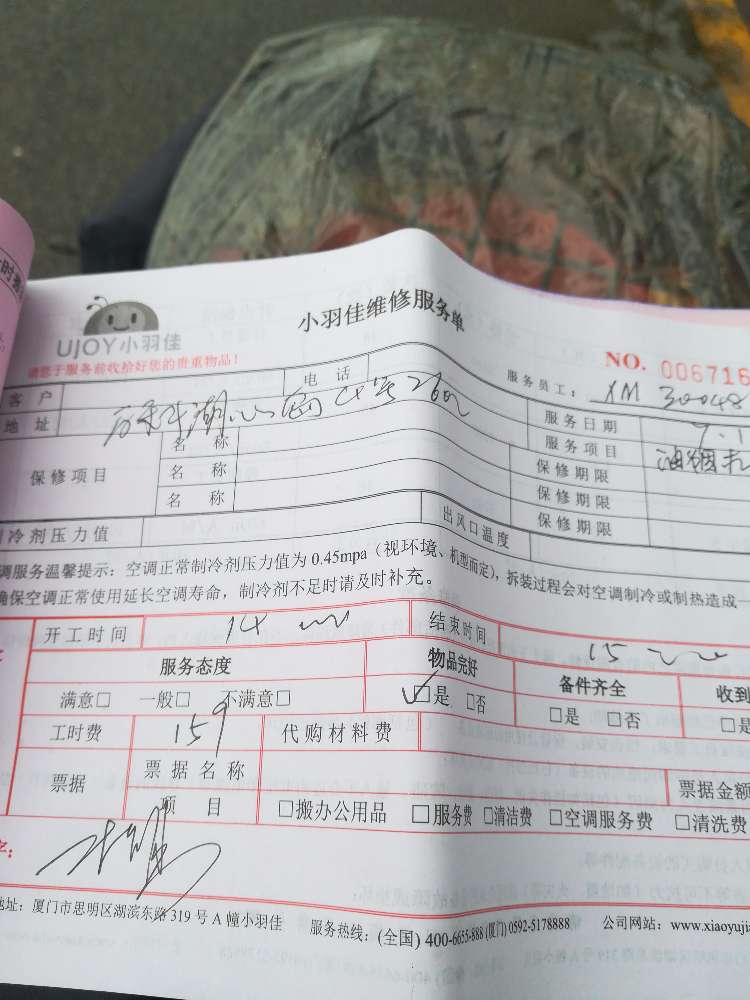 UJOY小羽佳
小羽佳维修服务单
请您于服务前收拾好您的贵重物品!
NO. 006716
客户 电话 服务员工: XM 30048
地址 湖心 服务日期 9.1
保修项目 名称 服务项目 油烟机
名称 保修期限
名称 保修期限
保修期限
冷剂压力值 出风口温度
调服务温馨提示:空调正常制冷剂压力值为 0.45mpa(视环境、机型而定),拆装过程会对空调制冷或制热造成一
确保空调正常使用延长空调寿命,制冷剂不足时请及时补充。
开工时间 14 结束时间 15
服务态度 物品完好 备件齐全 收到
满意□ 一般□ 不满意□ □是 □否 □是 □否 □是
工时费 159 代购材料费
票据 票据名称 票据金额
项目 □搬办公用品 □服务费 □清洁费 □空调服务费 □清洗费
字:
地址: 厦门市思明区湖滨东路 319 号 A 幢小羽佳 服务热线: (全国) 400-6655-888 (厦门) 0592-5178888 公司网站: www.xiaoyujia